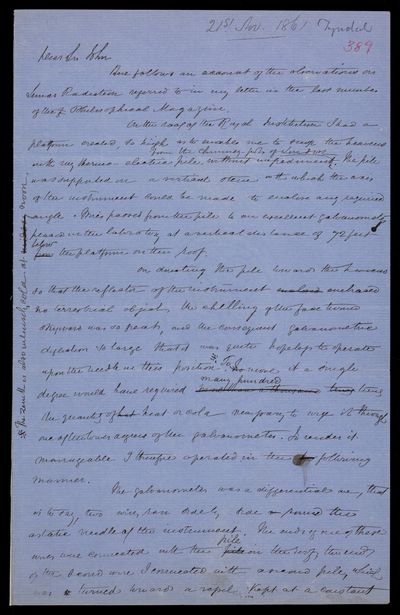 21st Nov. 1861 Tyndall
389
Dear Sir John
Here follows an account of the observations on
Lunar Radiation referred to in my letter in the last number
of the Philosophical Magazine.
On the roof of the Royal Institution I had a
platform erected, so high as to enable me to sweep the heavens
from the chimney pots of London
with my thermo-electric pile, without impediment. The pile
was supported on a vertical stem with which the axis
of the instrument could be made to enclose any required
angle. Wires passed from the pile to our excellent galvanometer
placed in the laboratory at a vertical distance of 72 feet
below
from the platform on the roof.
On directing the pile toward the heavens
so that the reflector of the instrument enclosed embraced
no terrestrial object, the chilling of the face turned
skyward was so great, and the consequent galvanometric
deflection so large that it was quite hopeless to operate
upon the needle in this position. To move it a single
many hundred
degree would have required times
the quantity of heat or cold necessary to urge it through
one of the lower degrees of the galvanometer. To render it
manageable I therefore operated in the following
manner.
The galvanometer was a differential one, that
is to say, two wires ran side by side round the
astatic needle of the instrument. The ends of one of these
pile
wires were connected with the on the roof, the ends
of the second wire I connected with a second pile, which
was turned toward a vessel kept at a constant
* The zenith is also intensely cold at noon